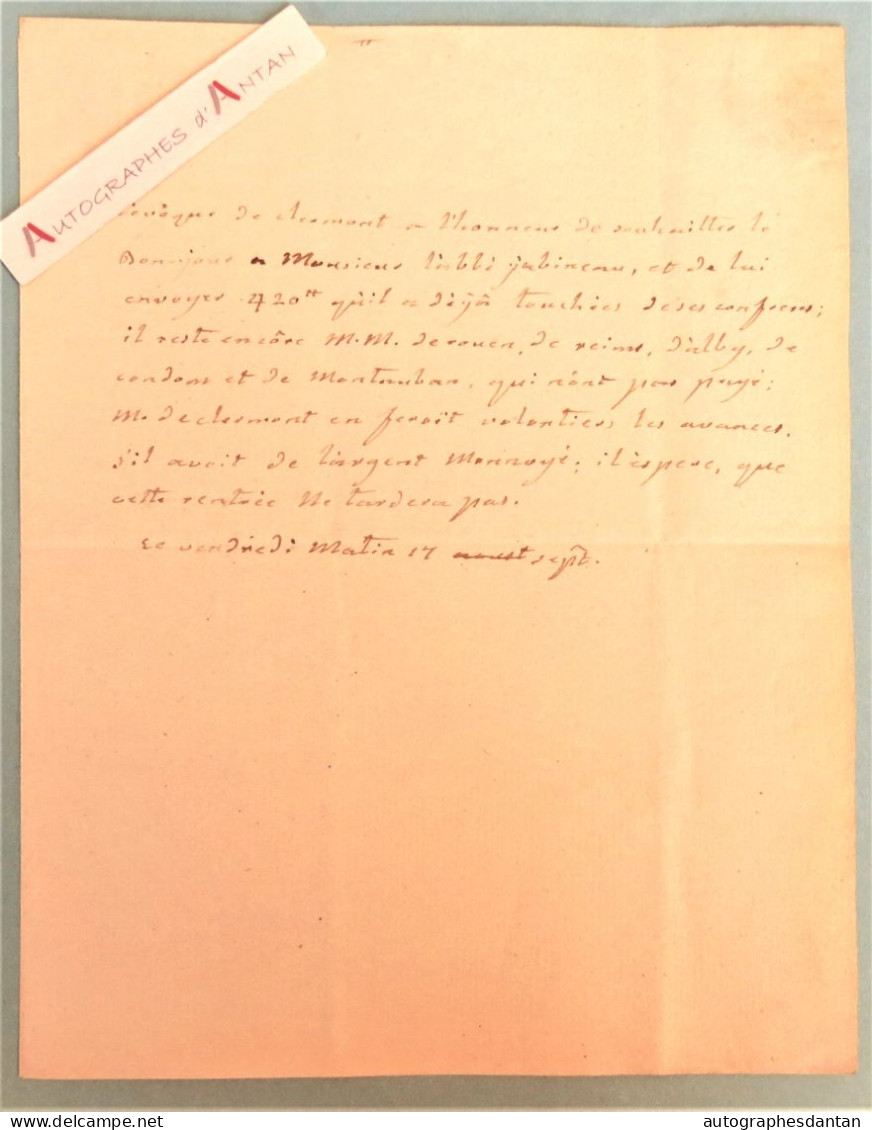 AUTOGRAPHES d'ANTAN
l'évêque de clermont a l'honneur de souhaitter le
Bon-jour a Monsieur l'abbé jabineau, et de lui
envoyer 420tt qu'il a déjà touchées de ses confreres;
il reste encôre M.M. de rouen, de reims, d'alby, de
condom et de Montauban, qui n'ont pas payé;
M. de clermont en feroit volontiers les avances,
s'il avoit de l'argent Monnoyé; il espere, que
cette rentrée Ne tardera pas.
ce vendredi Matin 17 aoust sept.
delcampe.net
autographesdantan